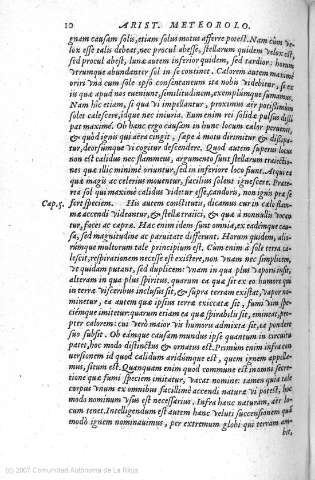 10 ARIST. METEOROLO.
gnam causam solis, etiam solus motus afferre potest. Nam cùm ve-
lox esse talis debeat, nec procul abesse, stellarum quidem velox est,
sed procul abest, lunæ autem inferior quidem, sed tardior: horum
utrumque abundanter sol in se continet. Calorem autem maximè
oriri unà cum sole ipso consentaneum ita nobis videbitur, si ex
iis quæ apud nos eveniunt, similitudinem, exemplumque sumamus.
Nam hic etiam, si qua vi impellantur, proximus aër potissimùm
solet calefieri, idque nec iniuria. Eum enim rei solidæ pulsus dissi
pat maximè. Ob hanc ergo causam in hunc locum calor pervenit,
& quòd ignis qui aëra cingit, sæpe à motu dirimitur & dissipa-
tur, deorsumque vi cogitur descendere. Quòd autem superus locus
non est calidus nec flammeus, argumento sunt stellarum traiectio-
nes quæ illic minimè oriuntur, sed in inferiore loco sunt. Atqui ea
quæ magis ac celerius moventur, facilius solent ignescere. Præte-
rea sol qui maximè calidus videtur esse, candoris, non ignis præ se
Cap.5. fert speciem. His autem constitutis, dicamus cur in cælo flam-
mæ accendi videantur, & stellæ traiici, & quæ à nonnullis vocan
tur, faces ac capræ. Hæc enim idem sunt omnia, ex eademque cau-
sa, sed magnitudine ac paruitate differunt. Horum quidem, alio-
rumque multorum tale principium est. Cùm enim à sole terra ca-
lescit, respirationem necesse est existere, non unam nec simplicem,
ut quidam putant, sed duplicem: unam in qua plus vaporis insit,
alteram in qua plus spiritus. quarum ea quæ sit ex eo humore qui
in terræ visceribus inclusus sit, & supra terram existat, vapor no-
minetur, ea autem quæ ipsius terræ exiccatæ sit, fumi vim spe-
ciemque imitetur: quarum etiam ea quæ spirabilis sit, emineat, pro-
pter calorem: cui verò maior vis humoris admixta sit, ea pondere
suo subsit. Ob eamque causam mundus ipse quantum in circuitu
patet, hoc modo distinctus & ornatus est. Primùm enim infra con
versionem id quod calidum aridumque est, quem ignem appella-
mus, situm est. Quanquam enim quod commune est in omni secre-
tione quæ fumi speciem imitatur, vacat nomine: tamen quia tale
corpus unum ex omnibus facillimè accendi natura vi potest, hoc
modo nominum usus est necessarius. Infra hanc naturam, aër lo-
cum tenet. Intelligendum est autem hanc veluti succensionem quá
modò ignem nominavimus, per extremum globi qui terram am-
bit,
(c) 2007 Comunidad Autónoma de La Rioja